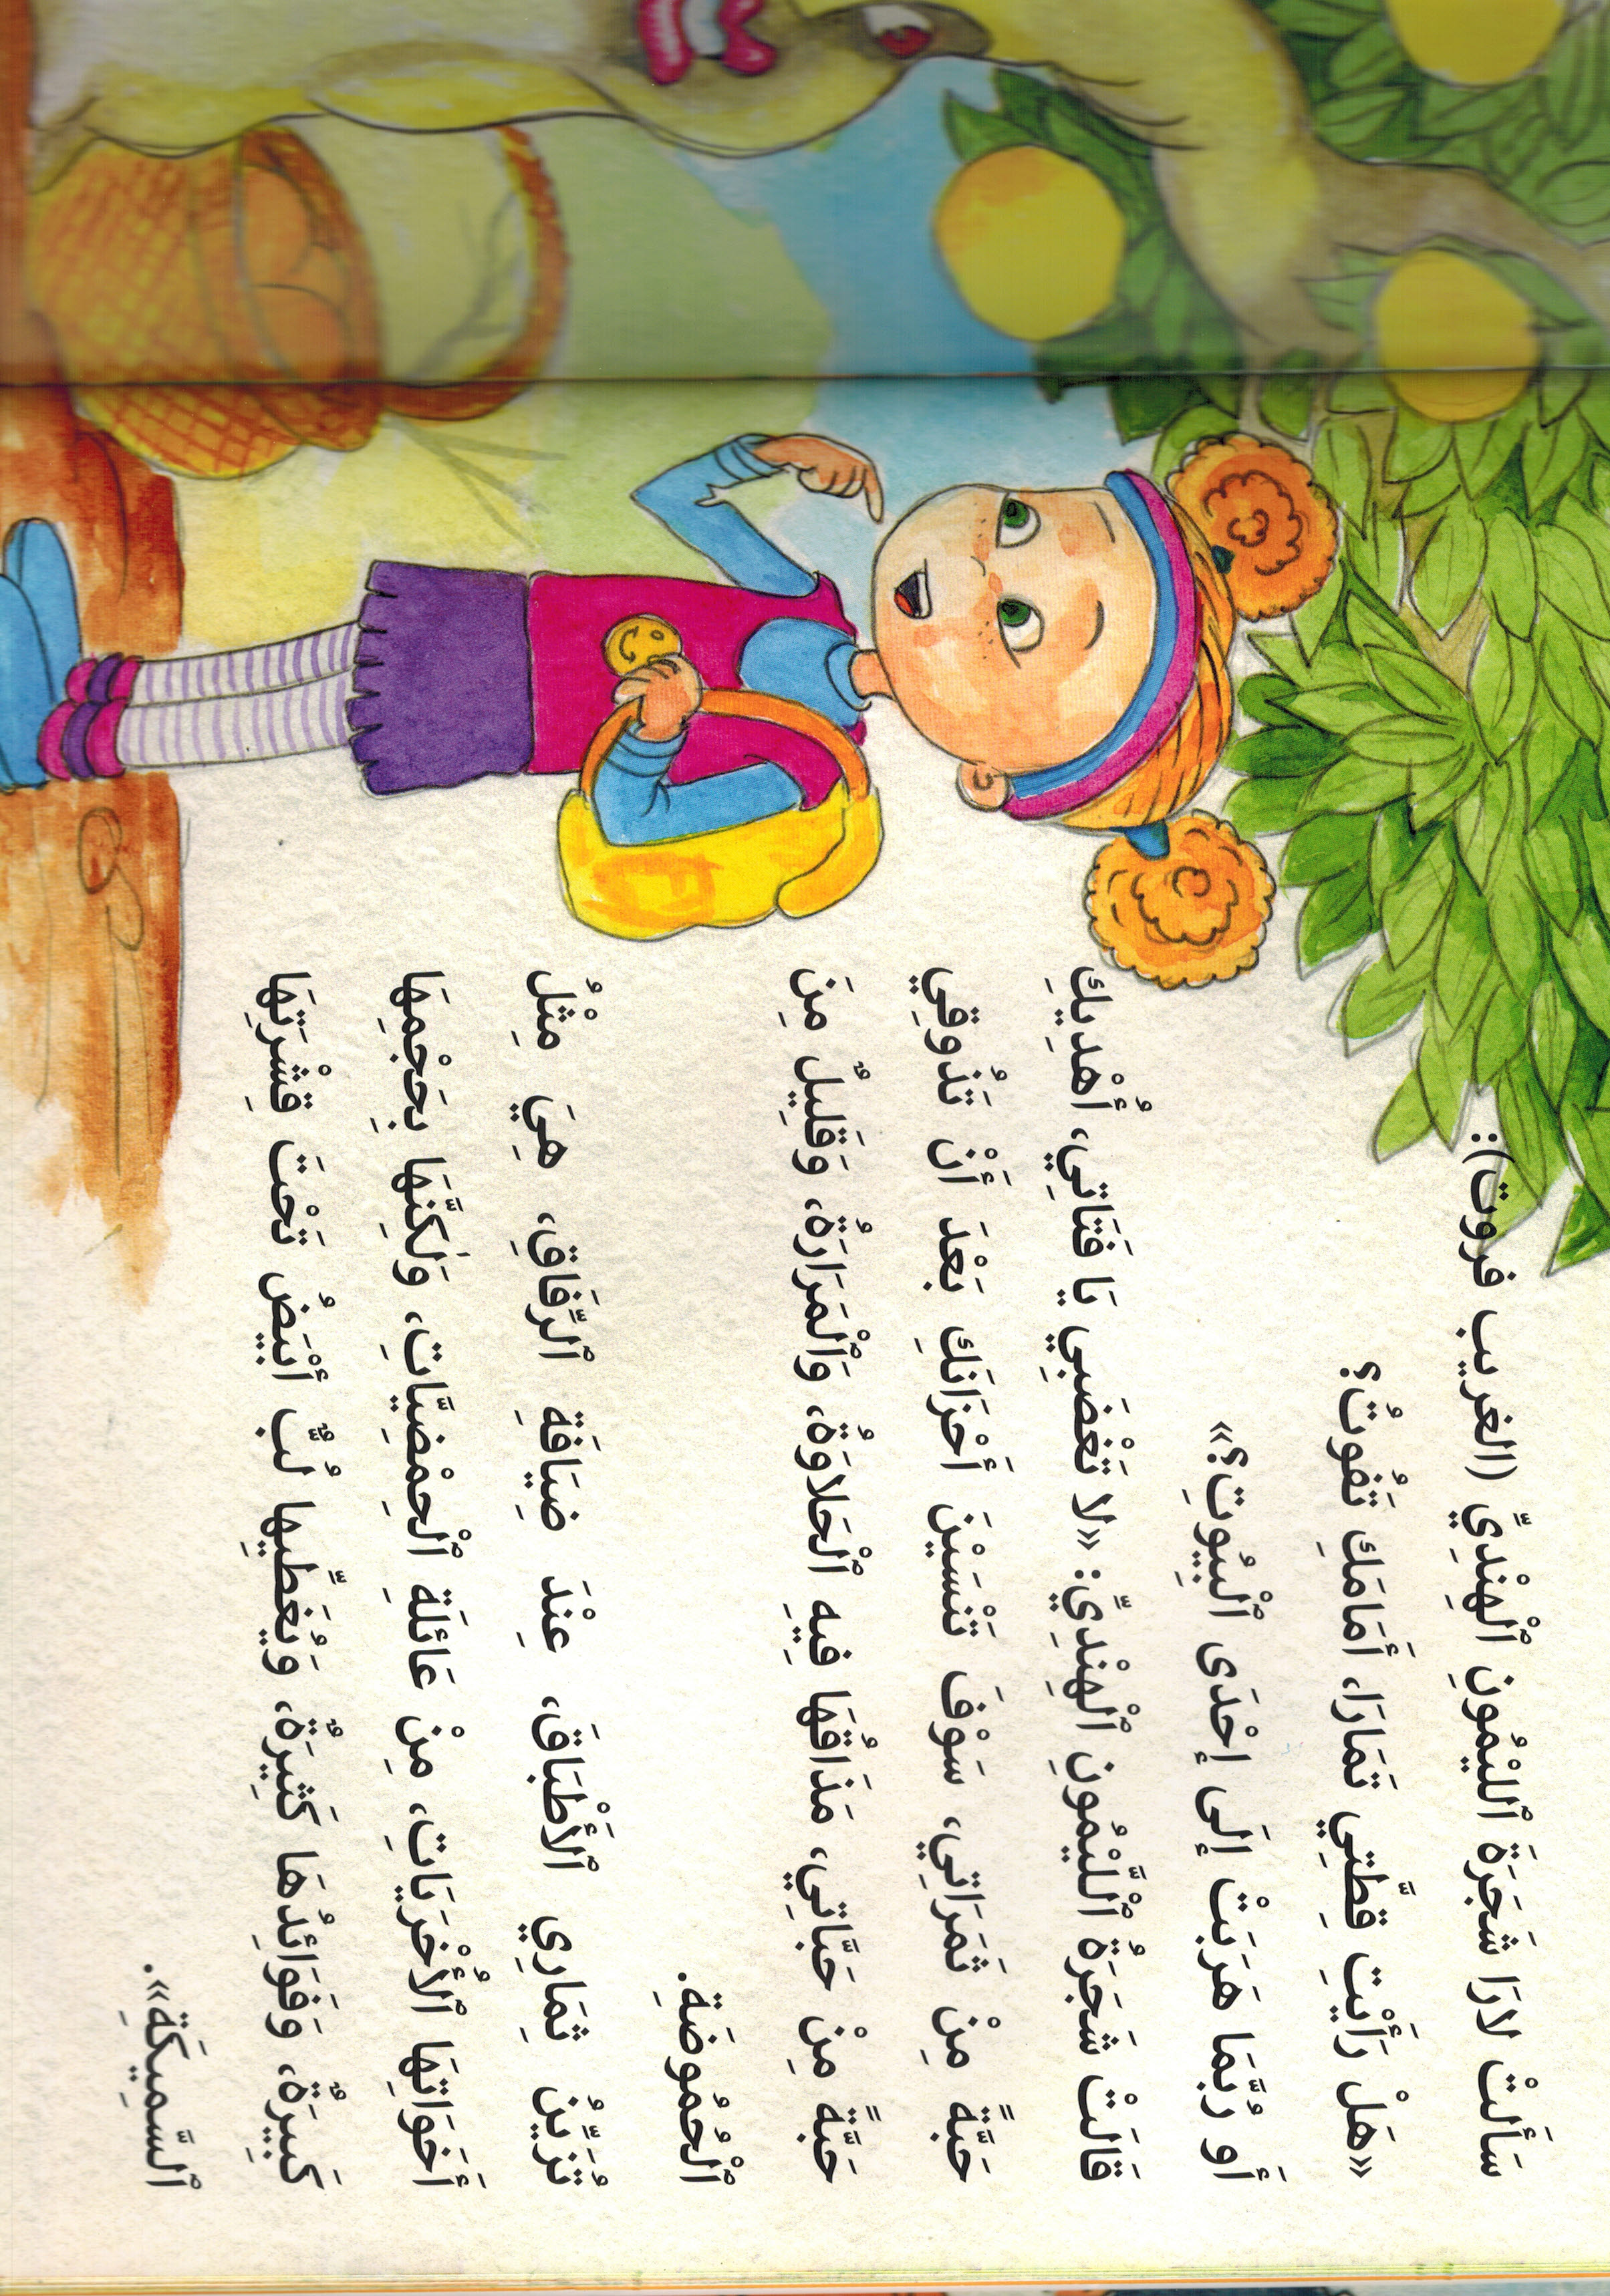 سَأَلَتْ لارَا شَجَرَةَ ٱللَيْمُونِ ٱلْهِنْدِيَّ (الغريب فروت):
«هَلْ رَأَيْتِ قِطَّتِي تَمَارَا، أَمَامَكِ تَفُوتُ؟
أَو رُبَّمَا هَرَبَتْ إِلَى إِحْدَى ٱلْبُيُوتِ؟»
قَالَتْ شَجَرَةُ ٱللَّيْمُونِ ٱلْهِنْدِيَّ: «لا تَغْضَبِي يَا فَتَاتِي، أُهْدِيكِ
حَبَّةً مِنْ ثَمَرَاتِي، سَوْفَ تَنْسَيْنَ أَحْزَانَكِ بَعْدَ أَنْ تَذُوقِي
حَبَّةً مِنْ حَبَّاتِي، مَذَاقُهَا فِيهِ ٱلْحَلاوَةُ، وَٱلْمَرَارَةُ، وَقَلِيلٌ مِنَ
ٱلْحُمُوضَةِ.
تُزَيِّنُ ثِمَارِي ٱلْأَطْبَاقَ، عِنْدَ ضِيَافَةِ ٱلرِّفَاقِ، هِيَ مِثْلُ
أَخَوَاتِهَا ٱلْأُخْرَيَاتِ، مِنْ عَائلَةِ ٱلْحِمْضِيَّاتِ، وَلَكِنَّهَا بِحَجْمِهَا
كَبِيرَةٌ، وَفَوَائدُهَا كَثِيرَةٌ، وَيُغَطِّيهَا لُبٌّ أَبْيَضُ تَحْتَ قِشْرَتِهَا
ٱلسَّمِيكَةِ».